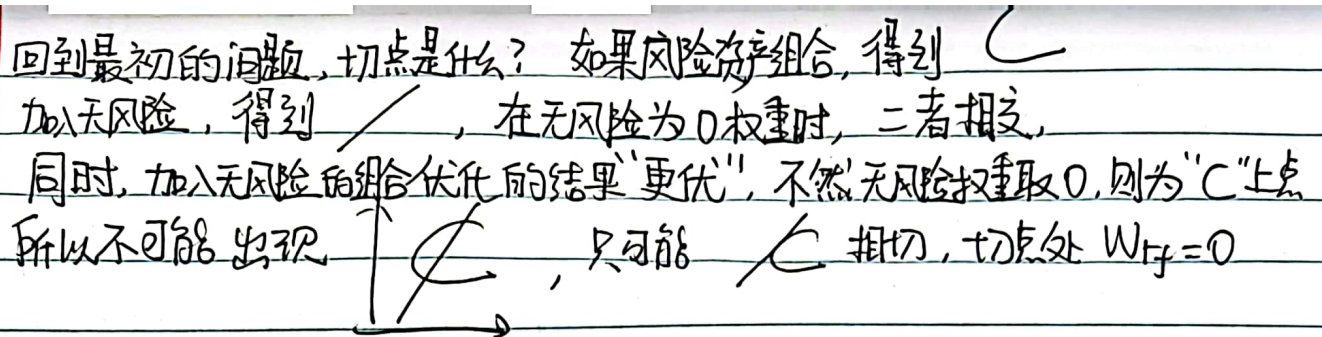 回到最初的问题,切点是什么? 如果风险资产组合,得到
加入无风险,得到 ,在无风险为0权重时,二者相交,
同时,加入无风险的组合优化的结果“更优”,不然无风险权重取0,则为“C”上点
所以不可能出现 ,只可能 相切,切点处 Wrf=0